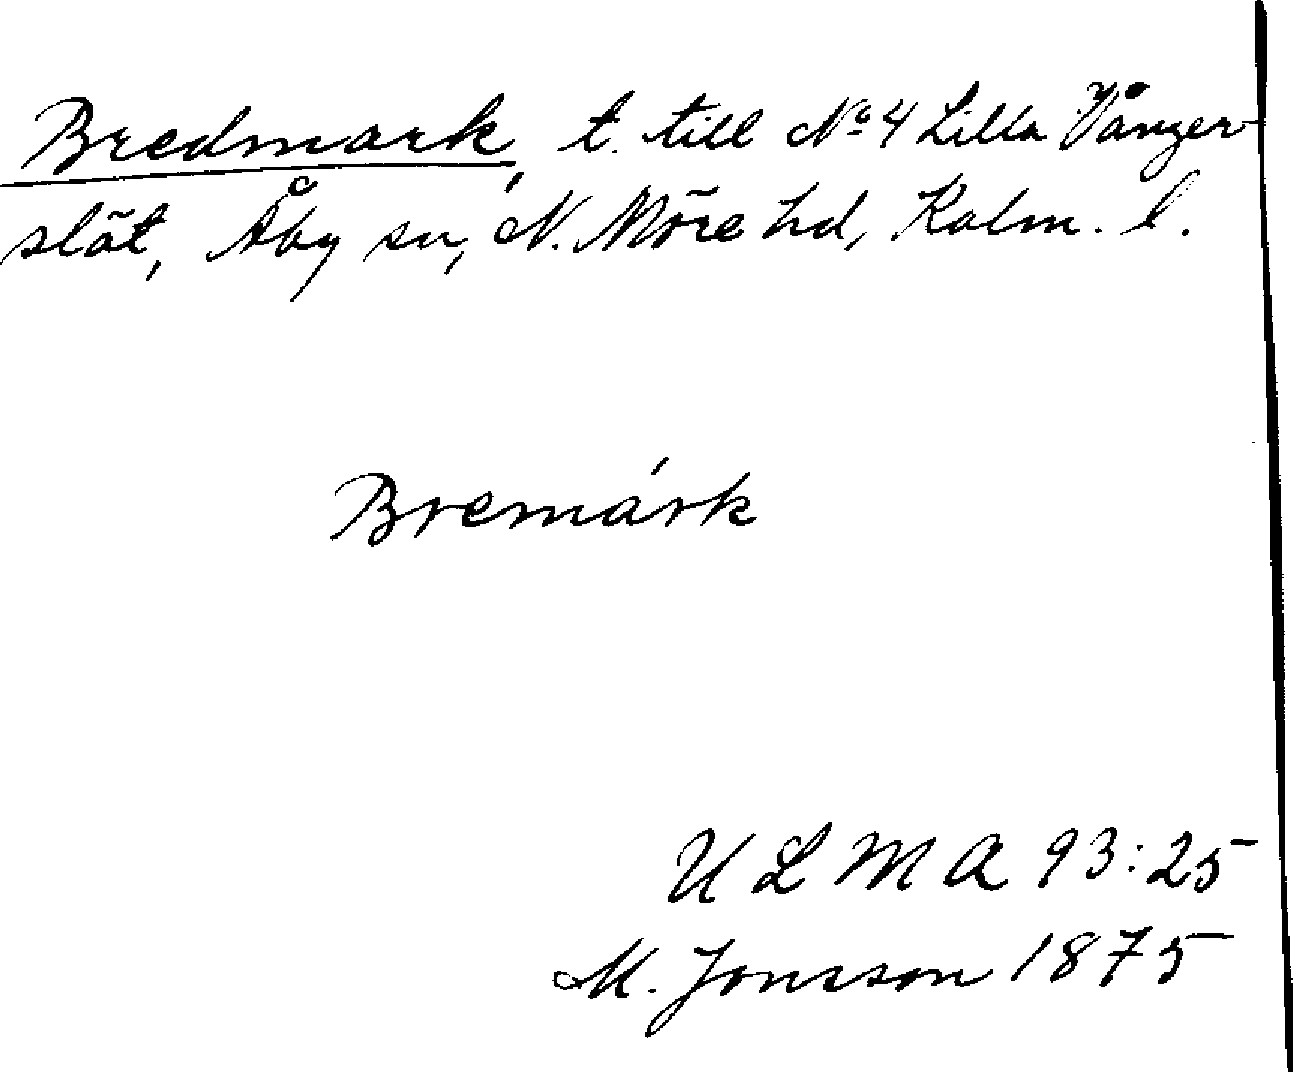 Bredmark, t. till No 4 Lilla Vånger-
slät, Åby sn, N. Möre hd, Kalm. l.
Bremárk
ULMA 93:25
M. Jonsson 1875